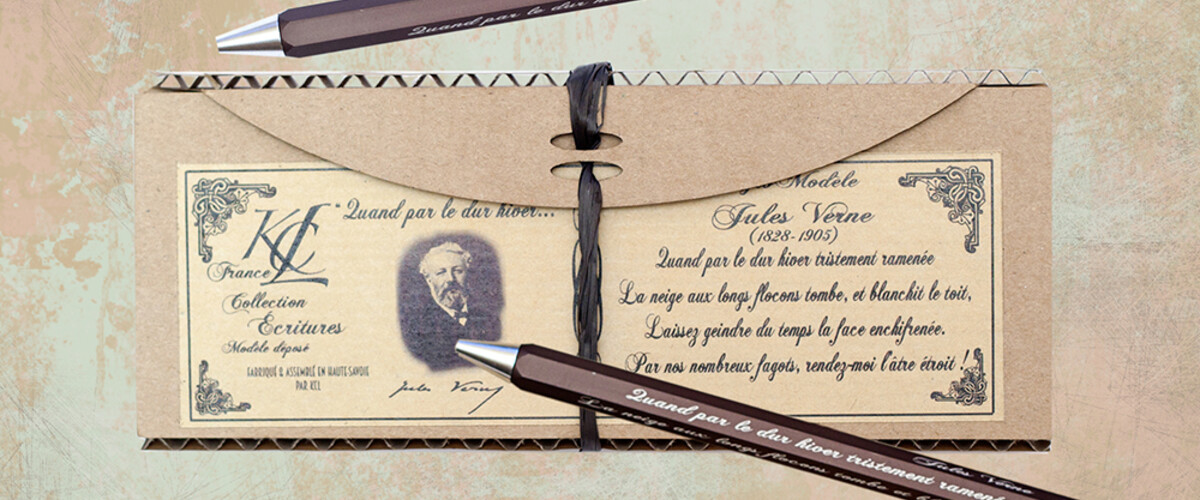 Quand par le dur hiver
KCL
France
Collection
Écritures
Modèle déposé
FABRIQUÉ & ASSEMBLÉ EN HAUTE-SAVOIE
PAR KEL
"Quand par le dur hiver...
Jules Verne
Modèle
Jules Verne
(1828-1905)
Quand par le dur hiver tristement ramenée
La neige aux longs flocons tombe, et blanchit le toit,
Laissez geindre du temps la face enchifrenée.
Par nos nombreux fagots, rendez-moi l'âtre étroit !
Quand par le dur hiver tristement ramen
La neige aux longs flocons tombe et b
Jules Verne